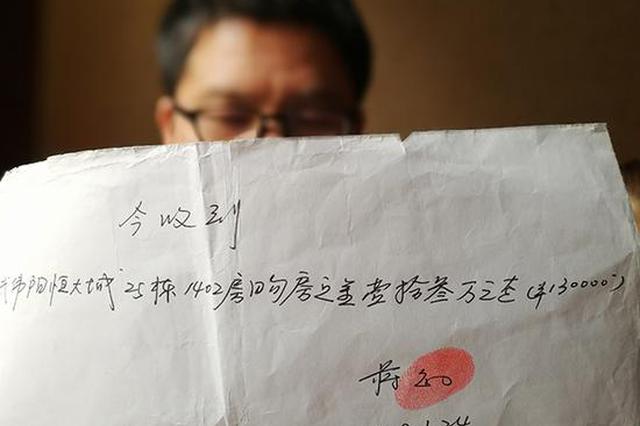 今收到
阳恒大城25栋1402房购房定金壹拾叁万元整(¥130000)
蒋